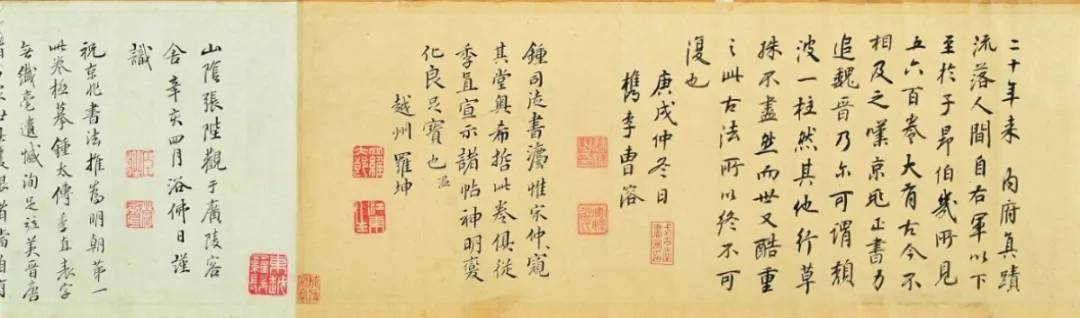 二十年来 内府真蹟
流落人間自右軍以下
至於子昂伯幾所見
五六百卷大有古今不
相及之嘆京兆正書力
追魏晉乃尔可謂頹
波一柱然其他行草
殊不盡然而世又酷重
之此古法所以終不可
復也
庚戌仲冬日
檇李曹溶
鍾司徒書灋惟宋仲窺
其堂奧希哲此卷俱從
季直宣示諸帖神明變
化良足寶也 溫
越州 羅坤
山陰張陛觀于廣陵客
舍辛亥四月浴佛日謹
識
祝京兆書法推為明朝第一
此卷極摹鍾太傅季直表字
無纖毫遺憾洵足美晉唐